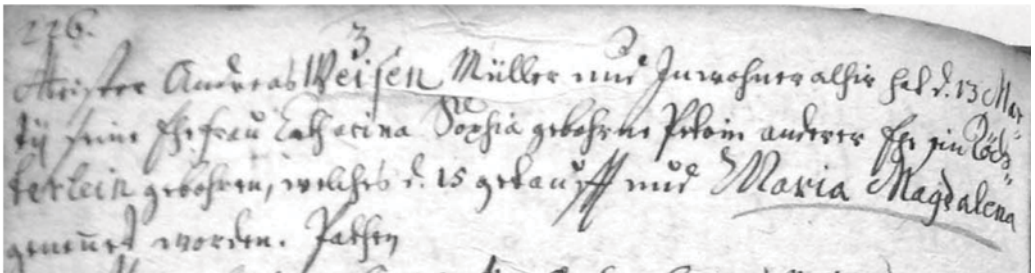 226.
3
Meister Andreas Weisen Müller und Inwohner alhir hat d. 13 Mar-
tij seine Ehefrau Catharina Sophia gebohrne anderer Ehe ein Töch-
terlein gebohren, welches d. 15 getaufft und Maria Magdalena
genen̅et worden. Pathen